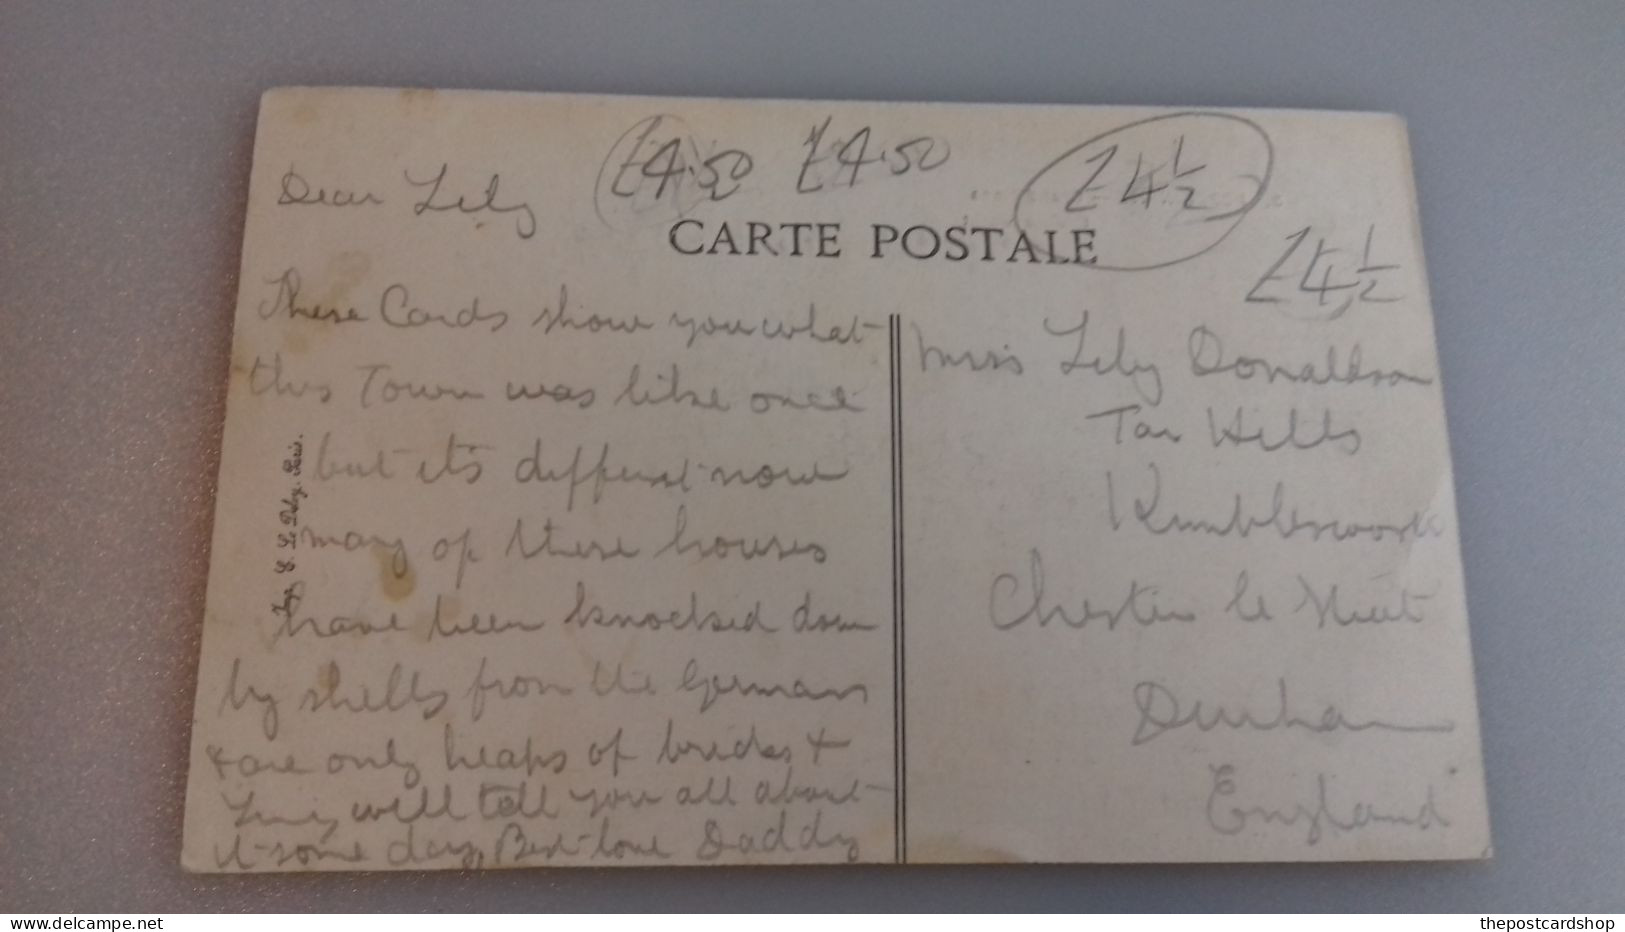 £4.50 £4.50 £4½
£4½
CARTE POSTALE
Dear Lily
These Cards show you what
this Town was like once
but it's different now
many of these houses
have been knocked down
by shells from the Germans
& are only heaps of bricks &
will tell you all about
it some day, Best love Daddy
Imp. E. Le Deley, Paris.
Miss Lily Donaldson
Tan Hills
Kimblesworth
Chester le Street
Durham
England
thepostcardshop